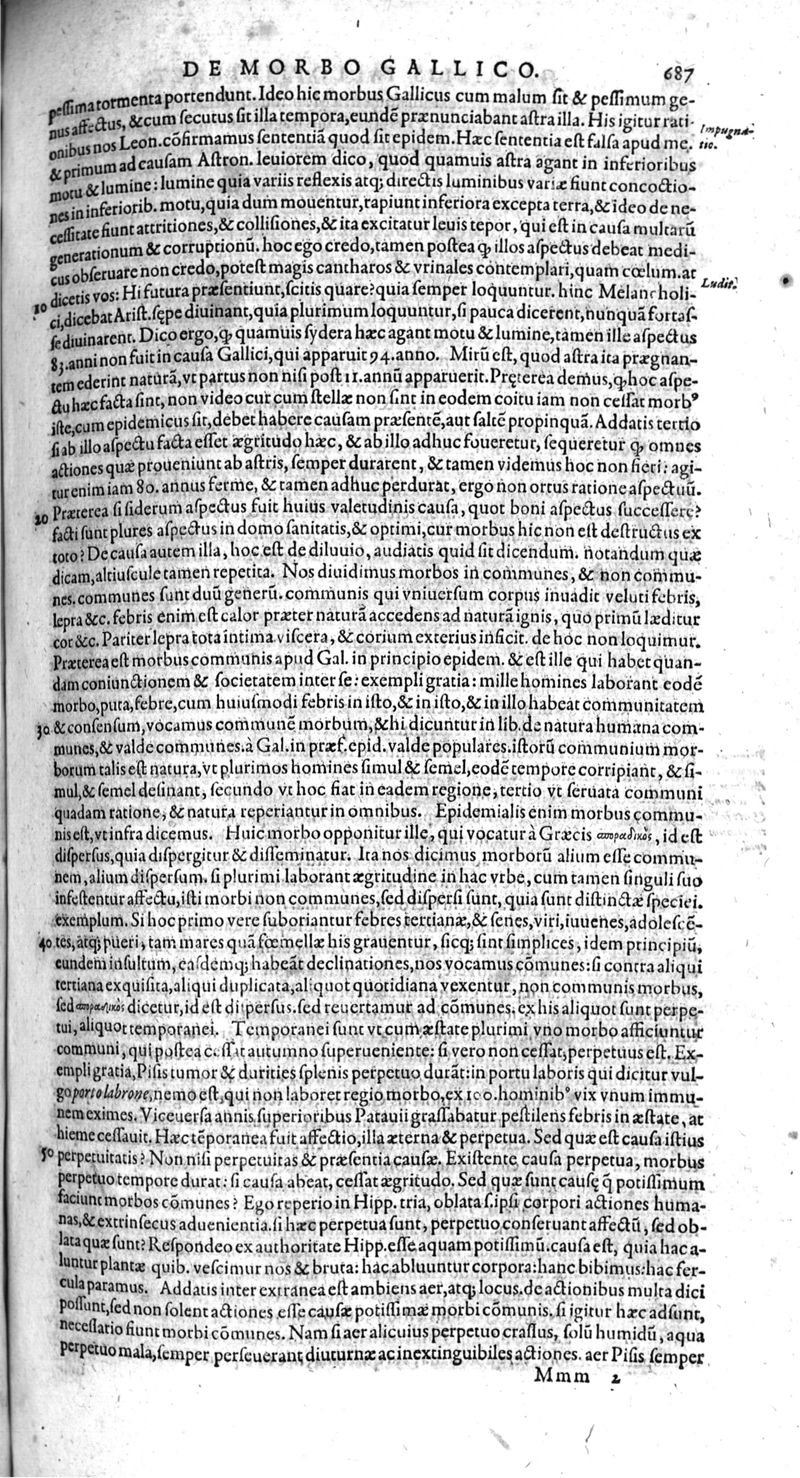 DE MORBO GALLICO. 687
peſſima tormenta portendunt. Ideo hic morbus Gallicus cum malum ſit & peſſimum ge-
nus affectus, & cum ſecutus ſit illa tempora, eundē prænunciabant aſtra illa. His igitur rati-
onibus nos Leon. cõfirmamus ſententiā quod ſit epidem. Hæc ſententia eſt falſa apud me.
Impugna-
tio.
& primum ad cauſam Aſtron. leuiorem dico, quod quamuis aſtra agant in inferioribus
motu & lumine: lumine quia variis reflexis atq; directis luminibus variæ fiunt concoctio-
nes in inferiorib. motu, quia dum mouentur, rapiunt inferiora excepta terra, & ideo de ne-
ceſſitate fiunt attritiones, & colliſiones, & ita excitatur leuis tepor, qui eſt in cauſa multarũ
generationum & corruptionũ. hoc ego credo, tamen poſtea ꝙ illos aſpectus debeat medi-
cus obſeruare non credo, poteſt magis cantharos & vrinales contemplari, quam cœlum. at
dicetis vos: Hi futura præſentiunt, ſcitis quare? quia ſemper loquuntur. hinc Melancholi-
Ludit.
10 ci, dicebat Ariſt. ſępe diuinant, quia plurimum loquuntur, ſi pauca dicerent, nunquā fortaſ-
ſe diuinarent. Dico ergo, ꝙ quamuis ſydera hæc agant motu & lumine, tamen ille aſpectus
83. anni non fuit in cauſa Gallici, qui apparuit 94. anno. Mirũ eſt, quod aſtra ita prægnan-
tem ederint naturā, vt partus non niſi poſt 11. annũ apparuerit. Pręterea demus, ꝙ hoc aſpe-
ctu hæc facta ſint, non video cur cum ſtellæ non ſint in eodem coitu iam non ceſſat morbꝰ
iſte, cum epidemicus ſit, debet habere cauſam præſentē, aut ſaltē propinquā. Addatis tertio
ſi ab illo aſpectu facta eſſet ægritudo hæc, & ab illo adhuc foueretur, ſequeretur ꝙ omnes
actiones quæ proueniunt ab aſtris, ſemper durarent, & tamen videmus hoc non fieri: agi-
tur enim iam 80. annus ferme, & tamen adhuc perdurat, ergo non ortus ratione aſpectuũ.
20 Præterea ſi ſiderum aſpectus fuit huius valetudinis cauſa, quot boni aſpectus ſucceſſerẽ?
facti ſunt plures aſpectus in domo ſanitatis, & optimi, cur morbus hic non eſt deſtructus ex
toto? De cauſa autem illa, hoc eſt de diluuio, audiatis quid ſit dicendum. notandum quæ
dicam, altiuſcule tamen repetita. Nos diuidimus morbos in communes, & non commu-
nes. communes ſunt duũ generũ. communis qui vniuerſum corpus inuadit veluti febris,
lepra &c. febris enim eſt calor præter naturā accedens ad naturā ignis, quo primũ læditur
cor &c. Pariter lepra tota intima viſcera, & corium exterius inficit. de hoc non loquimur.
Præterea eſt morbus communis apud Gal. in principio epidem. & eſt ille qui habet quan-
dam coniunctionem & ſocietatem inter ſe: exempli gratia: mille homines laborant eodē
morbo, puta, febre, cum huiuſmodi febris in iſto, & in iſto, & in illo habeat communitatem
30 & conſenſum, vocamus communē morbum, & hi dicuntur in lib. de natura humana com-
munes, & valde communes. à Gal. in præf. epid. valde populares. iſtorũ communium mor-
borum talis eſt natura, vt plurimos homines ſimul & ſemel, eodē tempore corripiant, & ſi-
mul, & ſemel deſinant, ſecundo vt hoc fiat in eadem regione, tertio vt ſeruata communi
quadam ratione, & natura reperiantur in omnibus. Epidemialis enim morbus commu-
nis eſt, vt infra dicemus. Huic morbo opponitur ille, qui vocatur à Græcis σποραδικὸς, id eſt
diſperſus, quia diſpergitur & diſſeminatur. Ita nos dicimus morborũ alium eſſe commu-
nem, alium diſperſum. ſi plurimi laborant ægritudine in hac vrbe, cum tamen ſinguli ſuo
infeſtentur affectu, iſti morbi non communes, ſed diſperſi ſunt, quia ſunt diſtinctæ ſpeciei.
exemplum. Si hoc primo vere ſuboriantur febres tertianæ, & ſenes, viri, iuuenes, adoleſcē-
40 tes, atq; pueri, tam mares quā fœmellæ his grauentur, ſicq; ſint ſimplices, idem principiũ,
eundem inſultum, eaſdemq; habeāt declinationes, nos vocamus cõmunes: ſi contra aliqui
tertiana exquiſita, aliqui duplicata, aliquot quotidiana vexentur, non communis morbus,
ſed σποραδικὸς dicetur, id eſt diſperſus. ſed reuertamur ad cõmunes. ex his aliquot ſunt perpe-
tui, aliquot temporanei. Temporanei ſunt vt cum æſtate plurimi vno morbo afficiuntur
communi, qui poſtea ceſſat autumno ſuperueniente: ſi vero non ceſſat, perpetuus eſt. Ex-
empli gratia, Piſis tumor & durities ſplenis perpetuo durāt: in portu laboris qui dicitur vul-
go porto labrone, nemo eſt, qui non laboret regio morbo, ex 100. hominibꝰ vix vnum immu-
nem eximes. Viceuerſa annis ſuperioribus Patauii graſſabatur peſtilens febris in æſtate, at
hieme ceſſauit. Hæc tēporanea fuit affectio, illa æterna & perpetua. Sed quæ eſt cauſa iſtius
50 perpetuitatis? Non niſi perpetuitas & præſentia cauſæ. Exiſtente cauſa perpetua, morbus
perpetuo tempore durat: ſi cauſa abeat, ceſſat ægritudo. Sed quæ ſunt cauſę q̄ potiſſimum
faciunt morbos cõmunes? Ego reperio in Hipp. tria, oblata ſ. ipſi corpori actiones huma-
nas, & extrinſecus aduenientia. ſi hæc perpetua ſunt, perpetuo conſeruant affectũ, ſed ob-
lata quæ ſunt? Reſpondeo ex authoritate Hipp. eſſe aquam potiſſimũ. cauſa eſt, quia hac a-
luntur plantæ quib. veſcimur nos & bruta: hac abluuntur corpora: hanc bibimus: hac fer-
cula paramus. Addatis inter extranea eſt ambiens aer, atq; locus. de actionibus multa dici
poſſunt, ſed non ſolent actiones eſſe cauſæ potiſſimæ morbi cõmunis. ſi igitur hæc adſunt,
neceſſario fiunt morbi cõmunes. Nam ſi aer alicuius perpetuo craſſus, ſolũ humidũ, aqua
perpetuo mala, ſemper perſeuerant diuturnæ ac inextinguibiles actiones. aer Piſis ſemper
Mmm 2